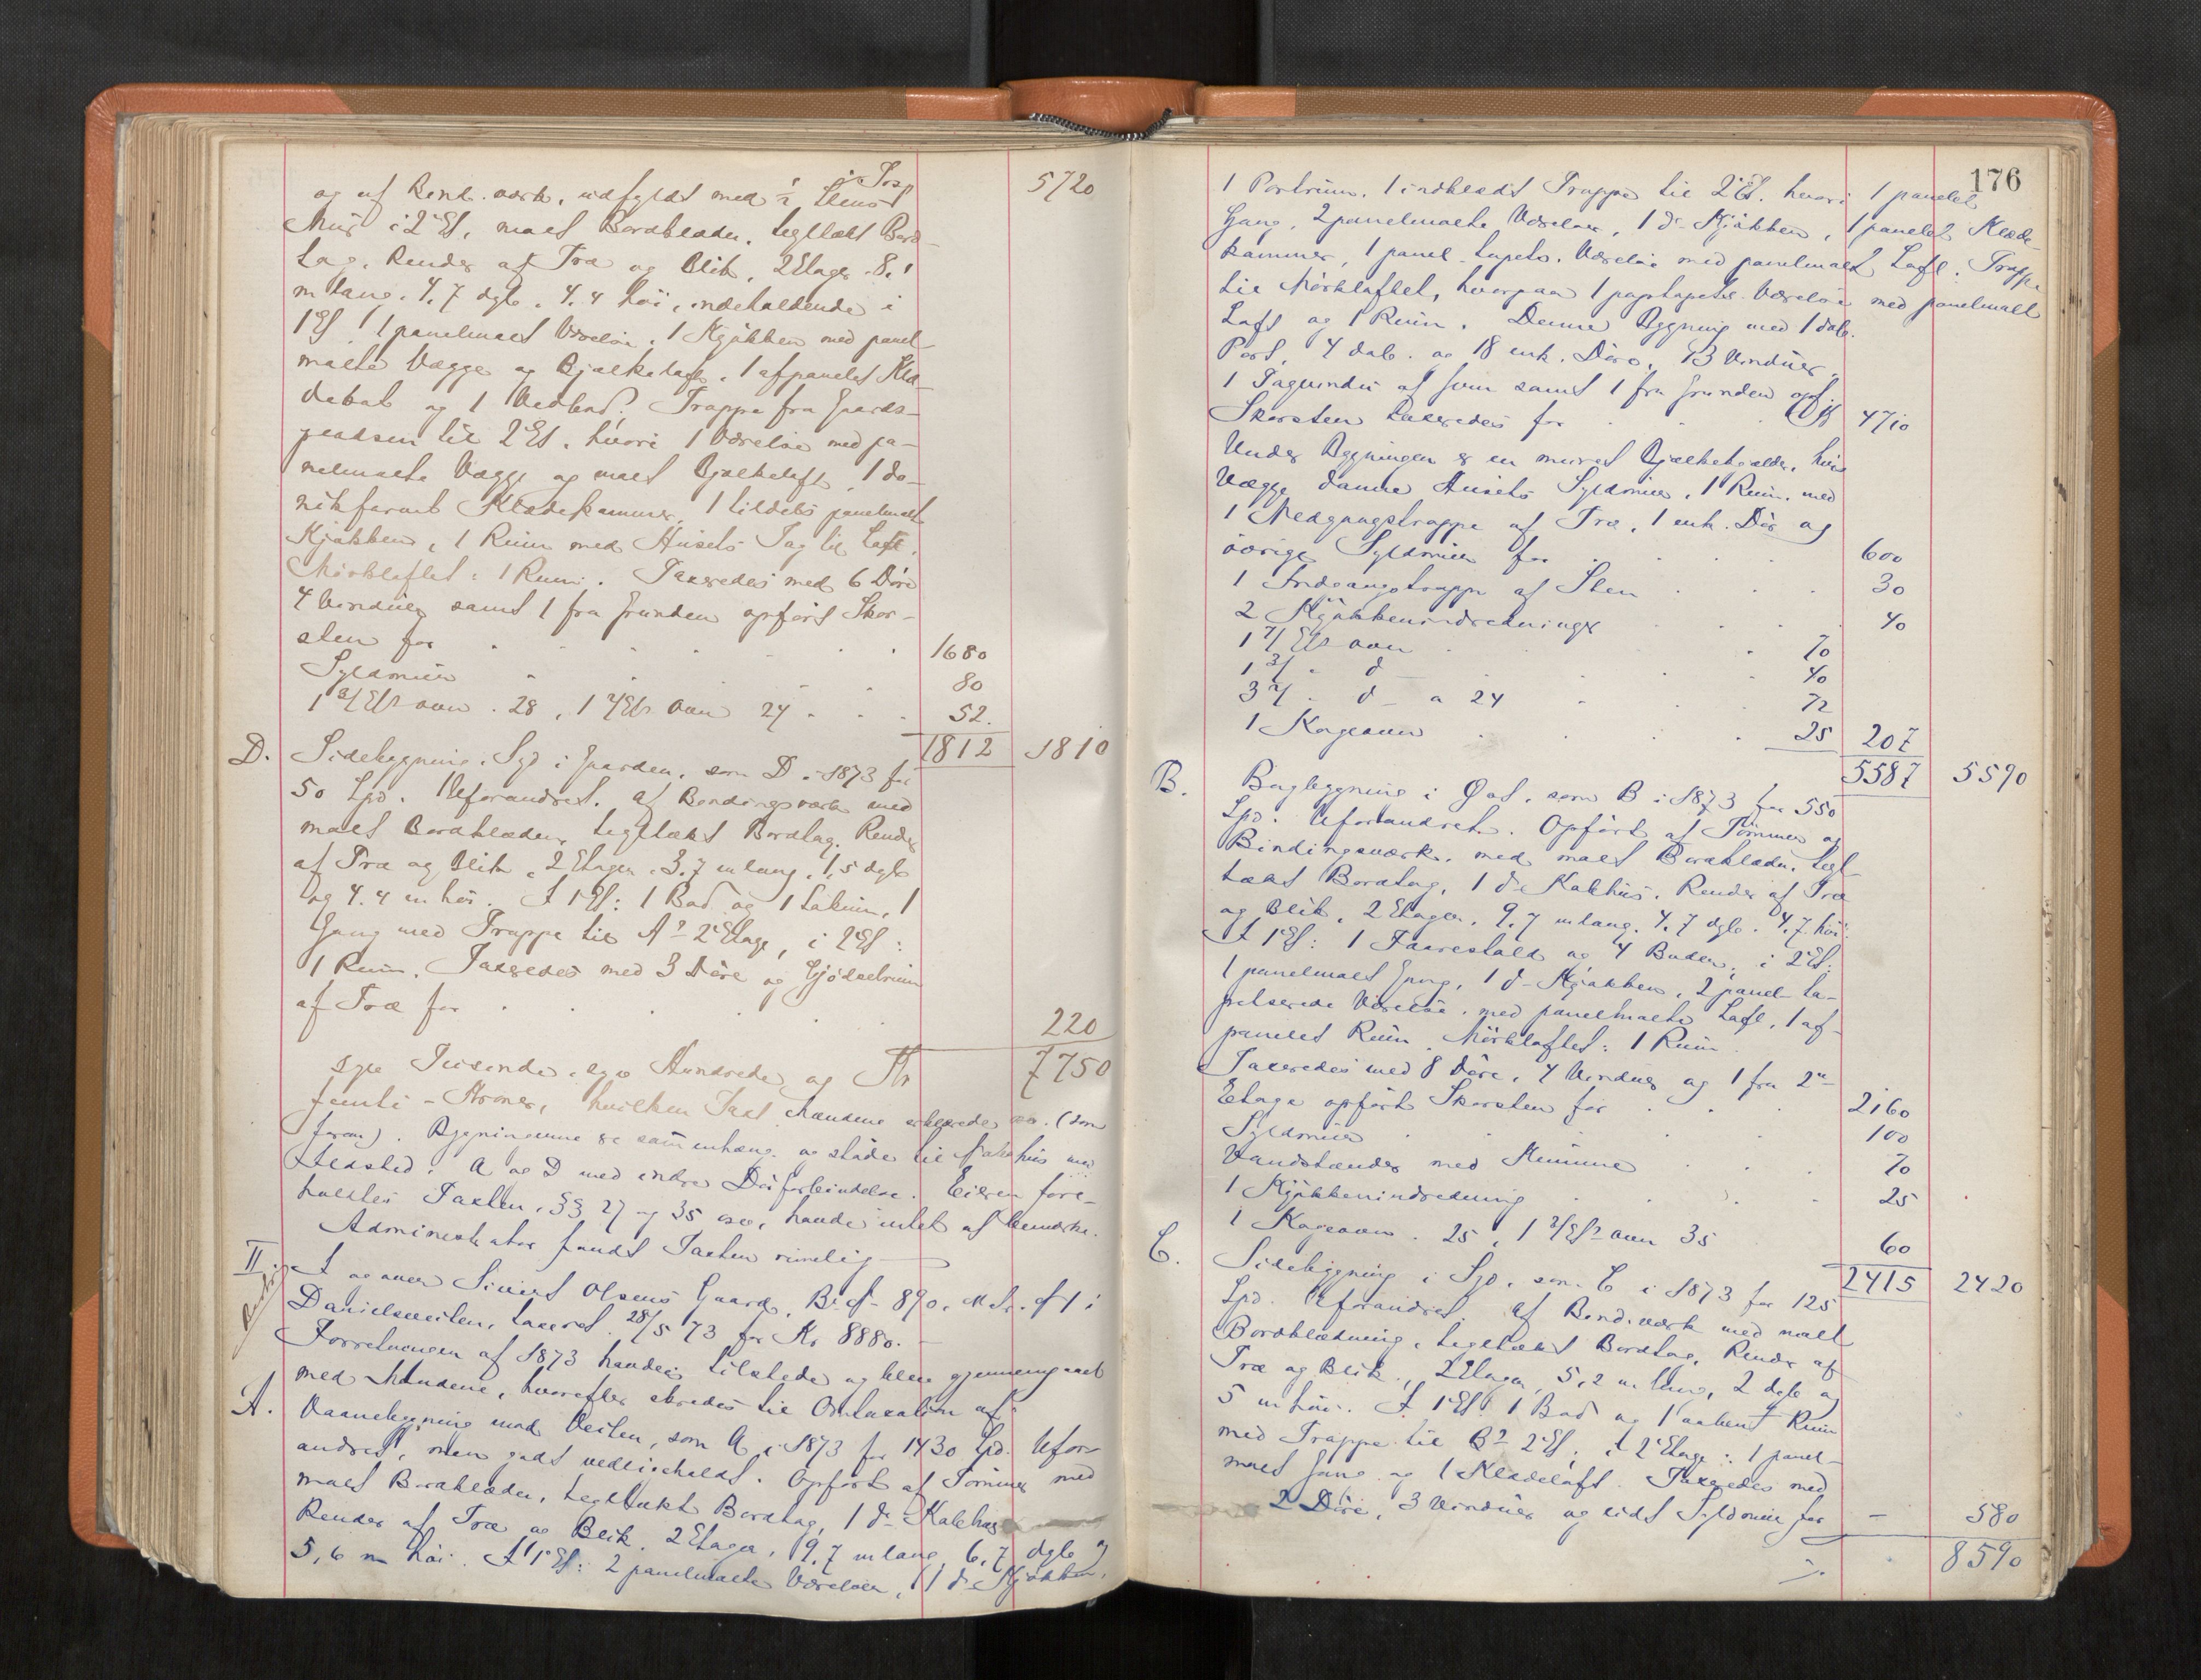 5720
og af Bind.værk, udfyldt med ½ Stens
Muur i 2 Et, malt Bordklædn. tegltækt Bord-
tag. Render af Træ og Blik, 2 Etager 8,1
m lang, 4,7 dyb, 4,4 høi, indeholdende i
1 Et: 1 panelmalt Værelse, 1 Kjøkken med panel-
malte Vægge og Bjælkeloft, 1 afpanelet Klæ-
debod og 1 Vedbod. Trappe fra Gaards-
pladsen til 2 Et. hvori 1 Værelse med pa-
nelmalte Vægge og malt Bjælkeloft, 1 do
Klædeskammer, 1 tildels panelmalt
Kjøkken, 1 Rum med Husets Tag til Loft,
Mørkloftet: 1 Rum. Taxeredes med 6 Döre
4 Vinduer samt 1 fra Grunden opført Skor-
sten for 1680
Syldmuur 80
1 3/Et ovn . 28 , 1 2/Et ovn 24 52.
1812 1810
D. Sidebygning i Syd i Gaarden, som D i 1873 for
50 Spd. Uforandret. af Bindingsværk med
malt Bordklædn, tegltækt Bordtag. Render
af Træ og Blik, 2 Etager, 3,7 m lang, 1,5 dyb
og 4,4 m høi. I 1 Et: 1 Bod og 1 Lokum, 1
Gang med Trappe til A's 2 Etage, i 2 Et:
1 Rum. Taxeredes med 3 Döre og Gjödselrum
af Træ for 220
Kr 7750
syv Tusende, syv Hundrede og
femti - Kroner, hvilken Taxt Mændene erklærede osv. (som
foran). Bygningerne er sammenhæng. og støder til Nabohus med
Ildsted. A og D med indre Dörforbindelse. Eieren fore-
holdtes Taxten, §§ 27 og 35 osv, havde intet at bemærke.
Administrator fandt Taxten rimelig
II. I og over Sivert Olsens Gaard, B. No 890, Mtr. No 1 i
Danielsveiten, taxeret 28/5 73 for Kr 8880.
Forretningen af 1873 havdes tilstede og blev gjennemgaaet
med Mændene, hvorefter skredes til Omtaxation af
A. Vaanebygning mod Veiten, som A i 1873 for 1430 Spd. Ufor-
andret, men godt vedligeholdt. Opført af Tömmer med
malt Bordklædn, tegltækt Bordtag, 1 do Kalehus
Render af Træ og Blik, 2 Etager, 9,7 m lang, 6,7 dyb og
5,6 m høi. I 1 Et: 2 panelmalte Værelser, 1 do Kjøkken,
176
1 Portrum. 1 indklædt Trappe til 2 Et. hvori 1 panelet
Gang, 2 panelmalte Værelser, 1 do Kjøkken, 1 panelet Klæde-
kammer, 1 panel-tapets. Værelse med panelmalt Loft. Trappe
til Mørkloftet, hvorpaa 1 paptapets. Værelse med panelmalt
Loft og 1 Rum. Denne Bygning med 1 dob.
Port, 4 dob. og 18 enk. Döre, 13 Vinduer,
1 Tagvindu af Jern samt 1 fra Grunden opf
Skorsten taxeredes for 4710
Under Bygningen er en muret Bjælkekjelder, hvis
Vægge danne Husets Syldmuur, 1 Rum, med
1 Nedgangstrappe af Træ, 1 enk. Dör og
övrige Syldmuur for 600
1 Indgangstrappe af Sten 30
2 Kjøkkenindredninger 40
1 4/Et ovn 70
1 3/ " do 40
3 2/ " do a 24 72
1 Kogeovn 25 207
5587 5590
B. Bagbygning i Øst, som B i 1873 for 550
Spd. Uforandret. Opført af Tömmer og
Bindingsværk, med malt Bordklædn, tegl-
tækt Bordtag, 1 do Kalehus. Render af Træ
og Blik, 2 Etager, 9,7 m lang, 4,7 dyb, 4,7 høi.
I 1 Et: 1 Faarestald og 4 Boder, i 2 Et:
1 panelmalt Gang, 1 do Kjøkken, 2 panel-ta-
petserede Værelse, med panelmalte Loft, 1 af-
panelet Rum. Mørkloftet: 1 Rum
Taxeredes med 8 Döre, 4 Vinduer og 1 fra 2den
Etage opført Skorsten for 2160
Syldmuur 100
Vandstænder med Kumme 70
1 Kjøkkenindredning 25
1 Kogeovn . 25 , 1 3/Et ovn 35 60
2415 2420
C. Sidebygning i Syd, som C i 1873 for 125
Spd. Uforandret. af Bind.værk med malt
Bordklædning, tegltækt Bordtag, Render af
Træ og Blik, 2 Etager, 5,2 m lang, 2 dyb og
5 m høi. I 1 Et: 1 Bod og 1 aabent Rum
med Trappe til B's 2 Et; i 2 Etage: 1 panel-
malt Gang og 1 Klædeloft. Taxeredes med
2 Döre, 3 Vinduer og lidt Syldmuur for - 580
8590